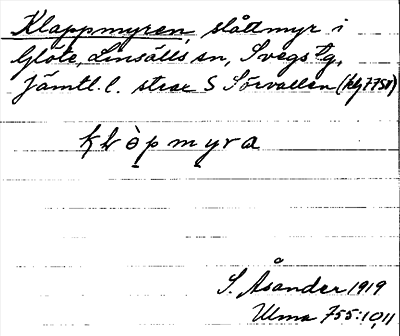 Klappmyren, slåttmyr i
Glöte, Linsälls sn, Svegs tg,
Jämtl. l. strax S Sörvallen
klòpmyra
S. Åsander 1919
Ulma 755:10,11